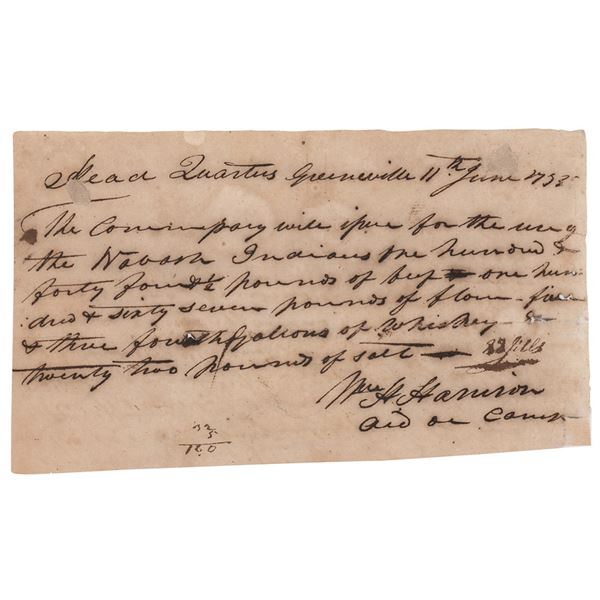 Head Quarters Greeneville 11th June 1795
The Commissary will issue for the use of
the Wabash Indians one hundred &
forty four ½ pounds of beef one hun-
dred & sixty seven pounds of flour - five
& three fourth Gallons of Whiskey &
twenty two pounds of salt —
Wm H Harrison
aid de Camp
32
5
160